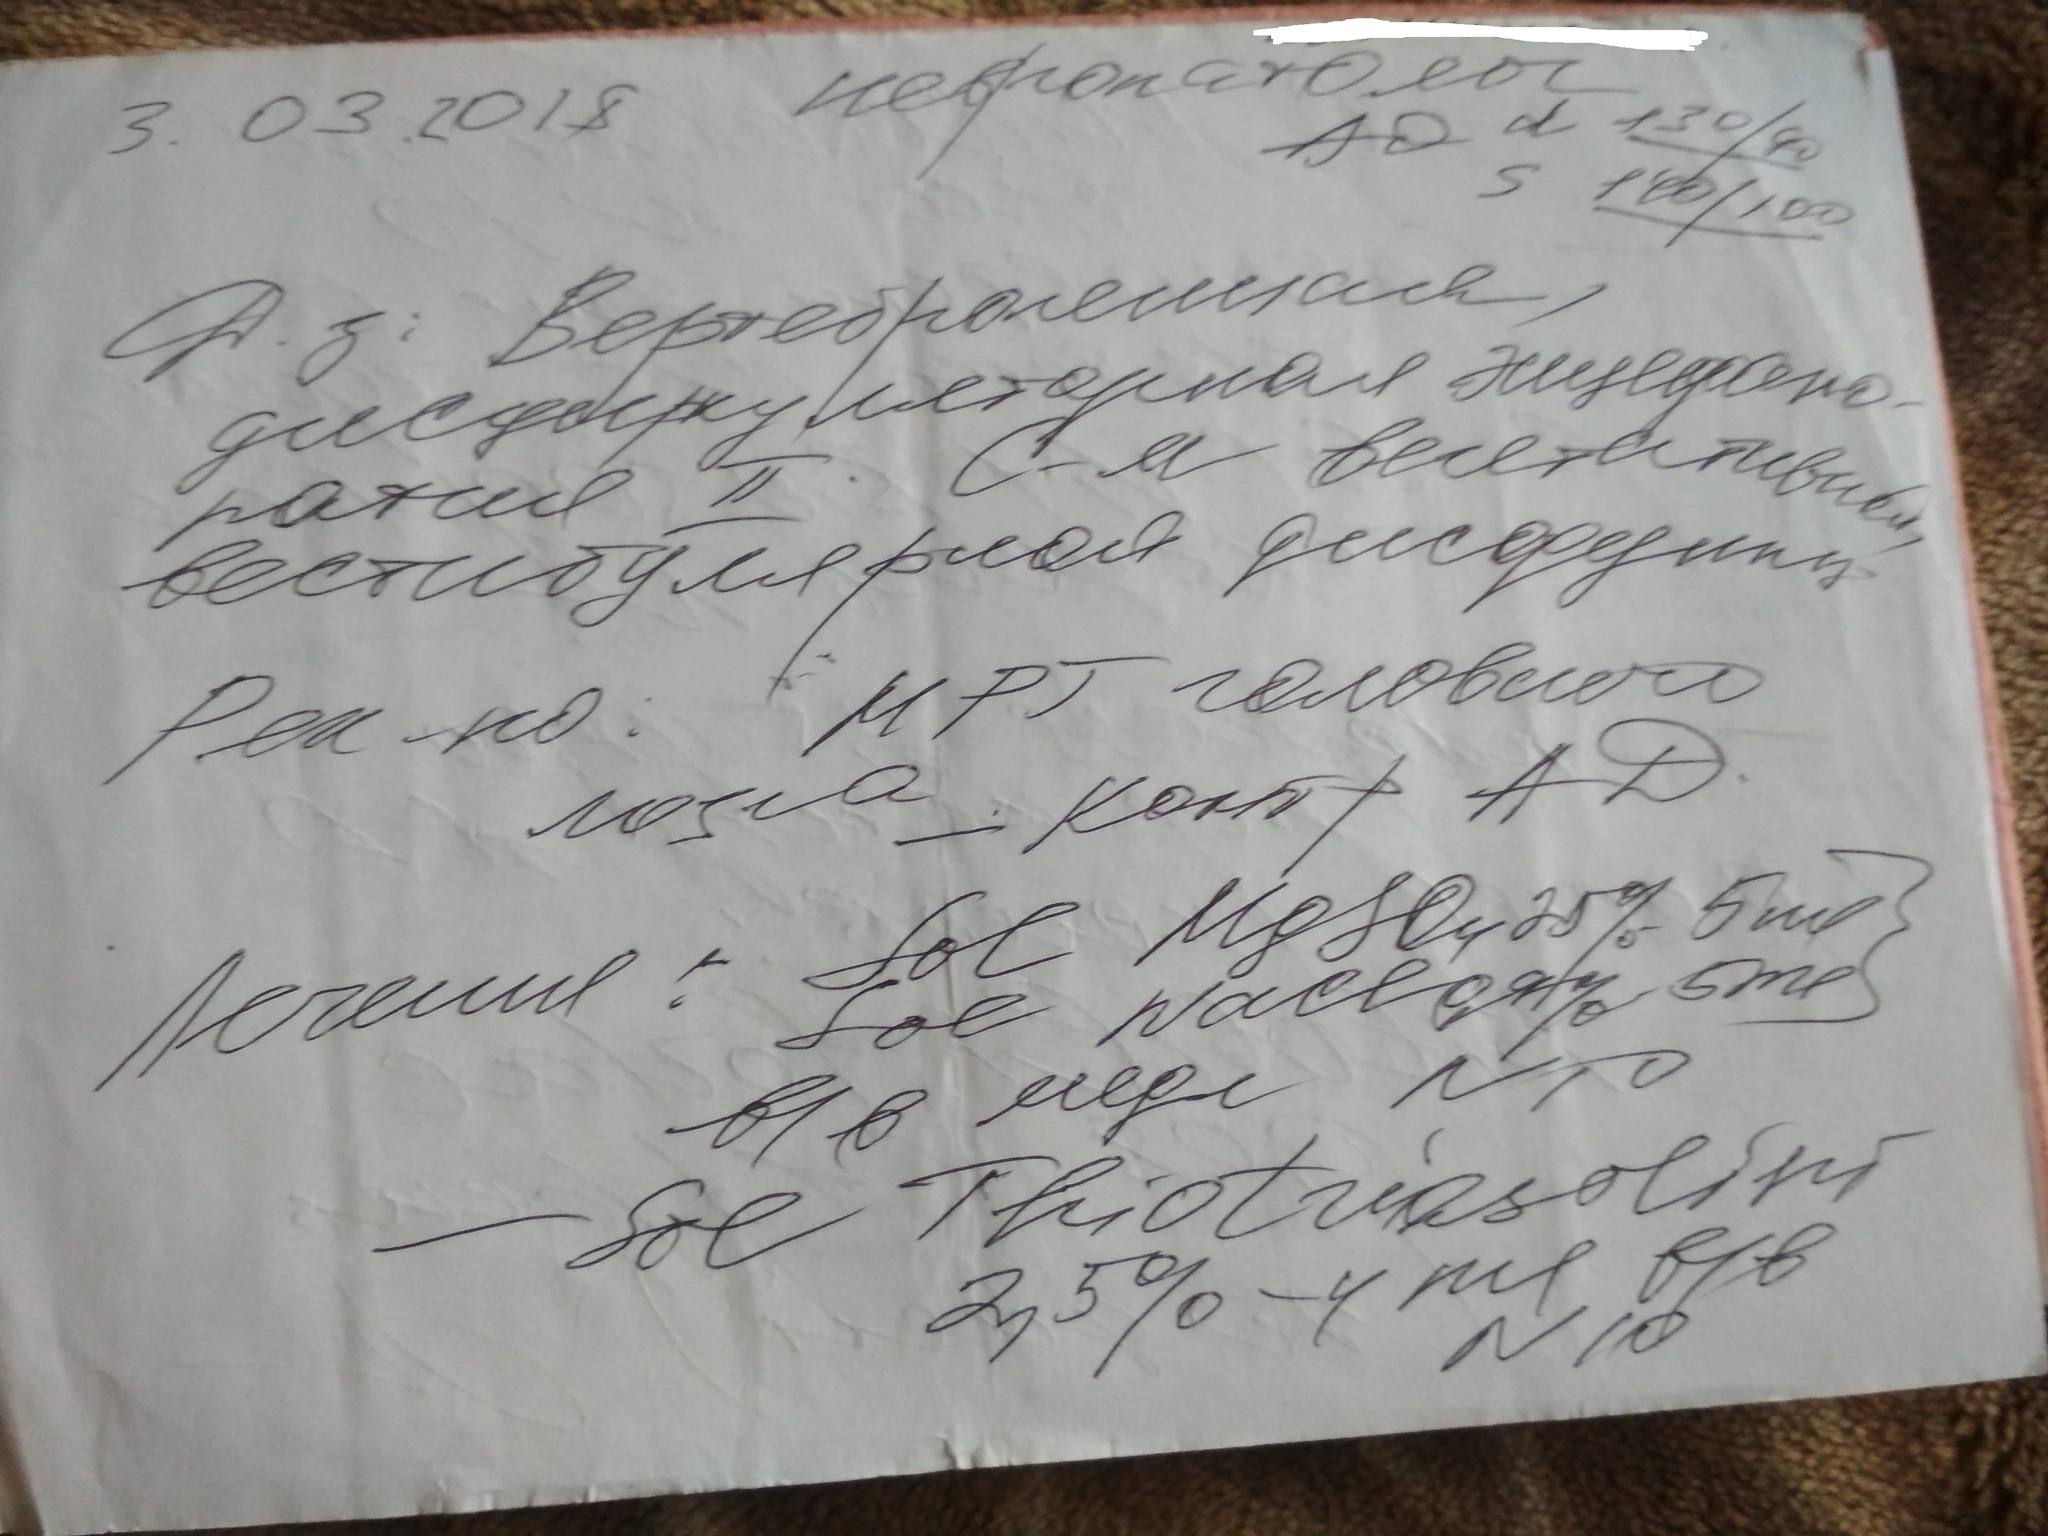 3. 03.2018 невропатолог
АД d 130/90
S 140/100
Д.з: Вертеброгенная,
дисциркуляторная энцефало-
патия II. С-м вегетативной,
вестибулярной дисфункц
Рек-но: МРТ головного
мозга - контр АД.
Лечение: Sol MgSO4 25% 5 ml
Sol 5 ml
в/в медл N 10
— Sol Thiotriasolini
2,5% - 4 ml в/в
N 10